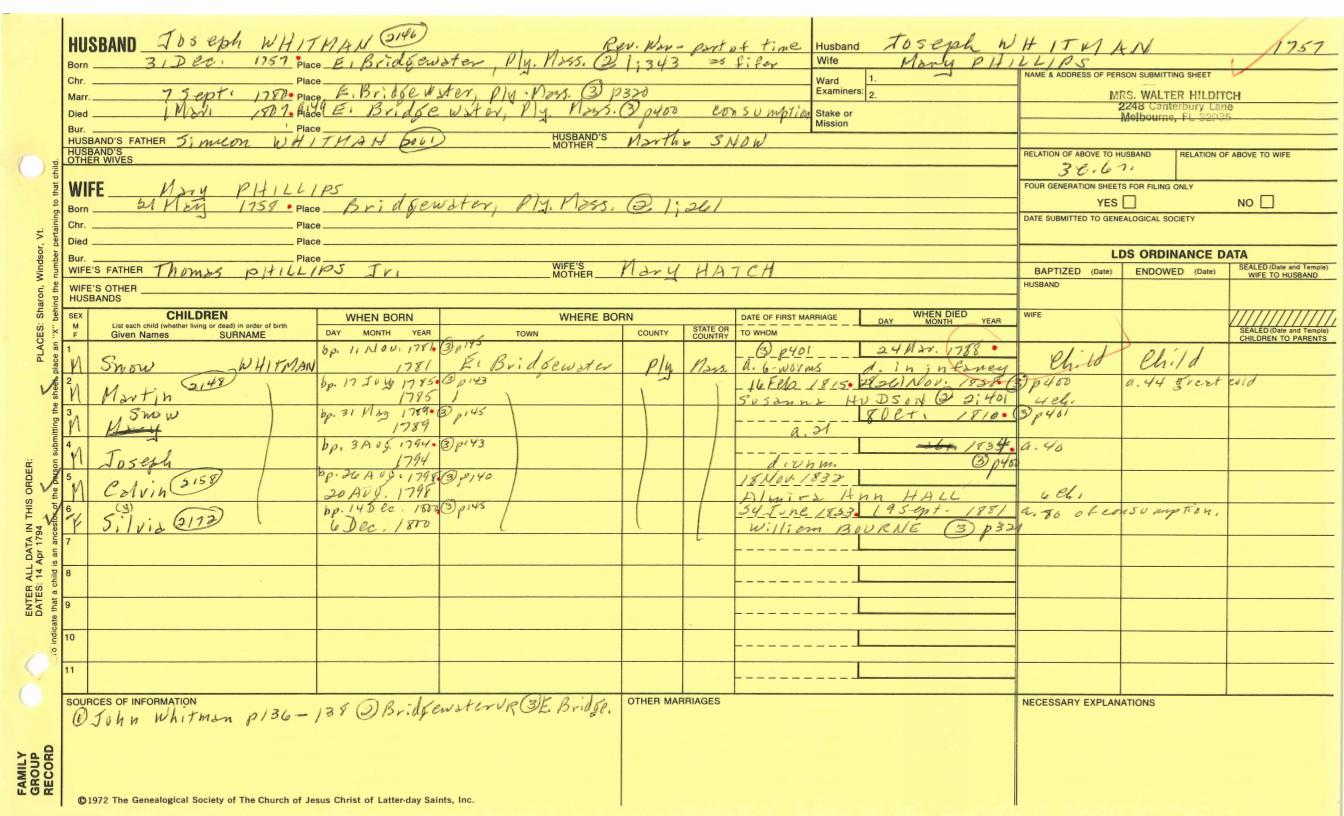 HUSBAND Joseph WHITMAN 2146 Rev. War - part of time
Born 31 Dec. 1757 Place E. Bridgewater, Ply. Mass. ② 1;343 as fifer
Chr. Place
Marr. 7 Sept. 1780 Place E. Bridgewater, Ply. Mass. ③ p320
Died 1 Mar. Place E. Bridgewater, Ply Mass. ③ p400 consumption
Bur. Place
HUSBAND'S FATHER Simeon WHITMAN 2061 HUSBAND'S MOTHER Martha SNOW
HUSBAND'S OTHER WIVES
Husband Joseph WHITMAN 1757
Wife Mary PHILLIPS
Ward Examiners: 1.
2.
Stake or Mission
NAME & ADDRESS OF PERSON SUBMITTING SHEET
MRS. WALTER HILDITCH
2248 Canterbury Lane
Melbourne, FL
RELATION OF ABOVE TO HUSBAND RELATION OF ABOVE TO WIFE
FOUR GENERATION SHEETS FOR FILING ONLY
YES NO
DATE SUBMITTED TO GENEALOGICAL SOCIETY
WIFE Mary PHILLIPS
Born 21 May 1758 Place Bridgewater, Ply. Mass. ② 1;261
Chr. Place
Died Place
Bur. Place
WIFE'S FATHER Thomas PHILLIPS Jr. WIFE'S MOTHER Mary HATCH
WIFE'S OTHER HUSBANDS
LDS ORDINANCE DATA
BAPTIZED (Date) ENDOWED (Date) SEALED (Date and Temple) WIFE TO HUSBAND
HUSBAND
WIFE
SEALED (Date and Temple) CHILDREN TO PARENTS
SEX M F CHILDREN WHEN BORN WHERE BORN DATE OF FIRST MARRIAGE WHEN DIED
List each child (whether living or dead) in order of birth
Given Names SURNAME DAY MONTH YEAR TOWN COUNTY STATE OR COUNTRY TO WHOM DAY MONTH YEAR
1 bp. 11 Nov. 1781 ③ p145 ③ p401 24 Mar. 1788
M Snow WHITMAN 1781 E. Bridgewater Ply Mass. a. 6-worms d. in infancy Child Child
2 2148 bp. 17 July 1785 ③ p143 16 Feb. 1815 Nov. ③ p400 a. 44 great cold
M Martin 1785 Susanna HUDSON ② 2;401 4 ch.
3 Snow bp. 31 May 1789 ③ p145 8 Oct. 1810 ③ p401
M Mary 1789 a. 21
4 bp. 3 Aug. 1794 ③ p143 1834 a. 40
M Joseph 1794 d. unm. ③ p400
5 bp. 26 Aug. 1798 ③ p140 18 Nov 1832
M Calvin 2158 20 Aug. 1798 Almira Ann HALL 6 ch.
6 (y) bp. 14 Dec. 1800 ③ p145 June 1823 19 Sept. 1881 a. 80 of consumption.
F Silvia 2172 6 Dec. 1800 William BOURNE ③ p321
7
8
9
10
11
SOURCES OF INFORMATION
① John Whitman p136-138 ② Bridgewater VR ③ E. Bridge.
OTHER MARRIAGES
NECESSARY EXPLANATIONS
©1972 The Genealogical Society of The Church of Jesus Christ of Latter-day Saints, Inc.
FAMILY
GROUP
RECORD
ENTER ALL DATA IN THIS ORDER:
DATES: 14 Apr 1794 PLACES: Sharon, Windsor, Vt.
To indicate that a child is an ancestor of the person submitting the sheet, place an "X" behind the number pertaining to that child.